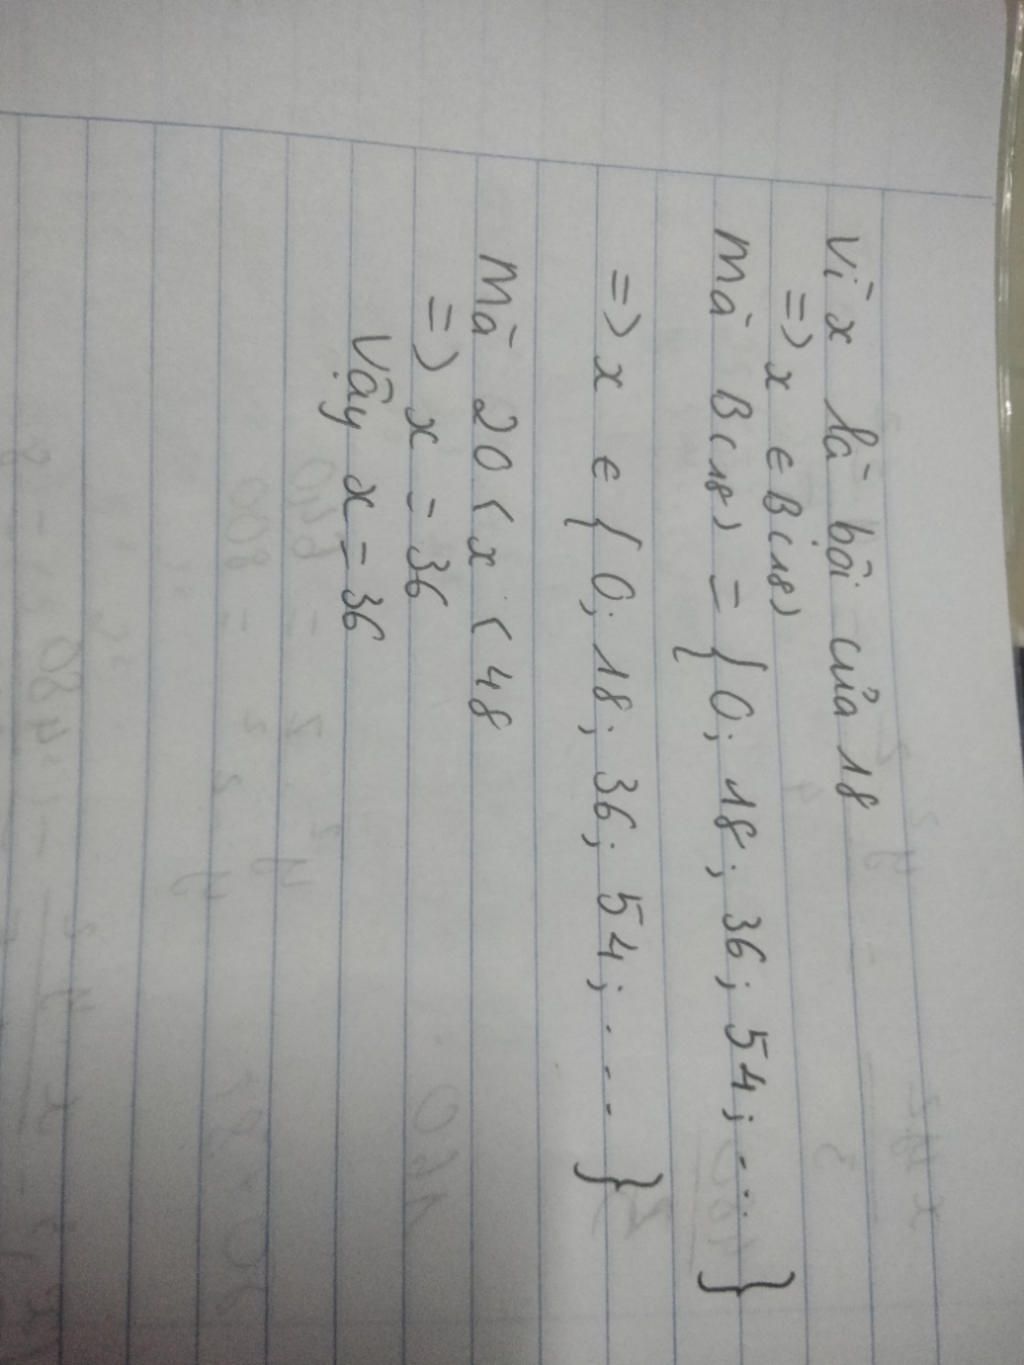 Vì x là bội của 18
=) x ∈ B(18)
Mà B(18) = { 0; 18; 36; 54; .... }
=) x ∈ { 0; 18; 36; 54; .... }
Mà 20 < x < 48
=) x = 36
Vậy x = 36